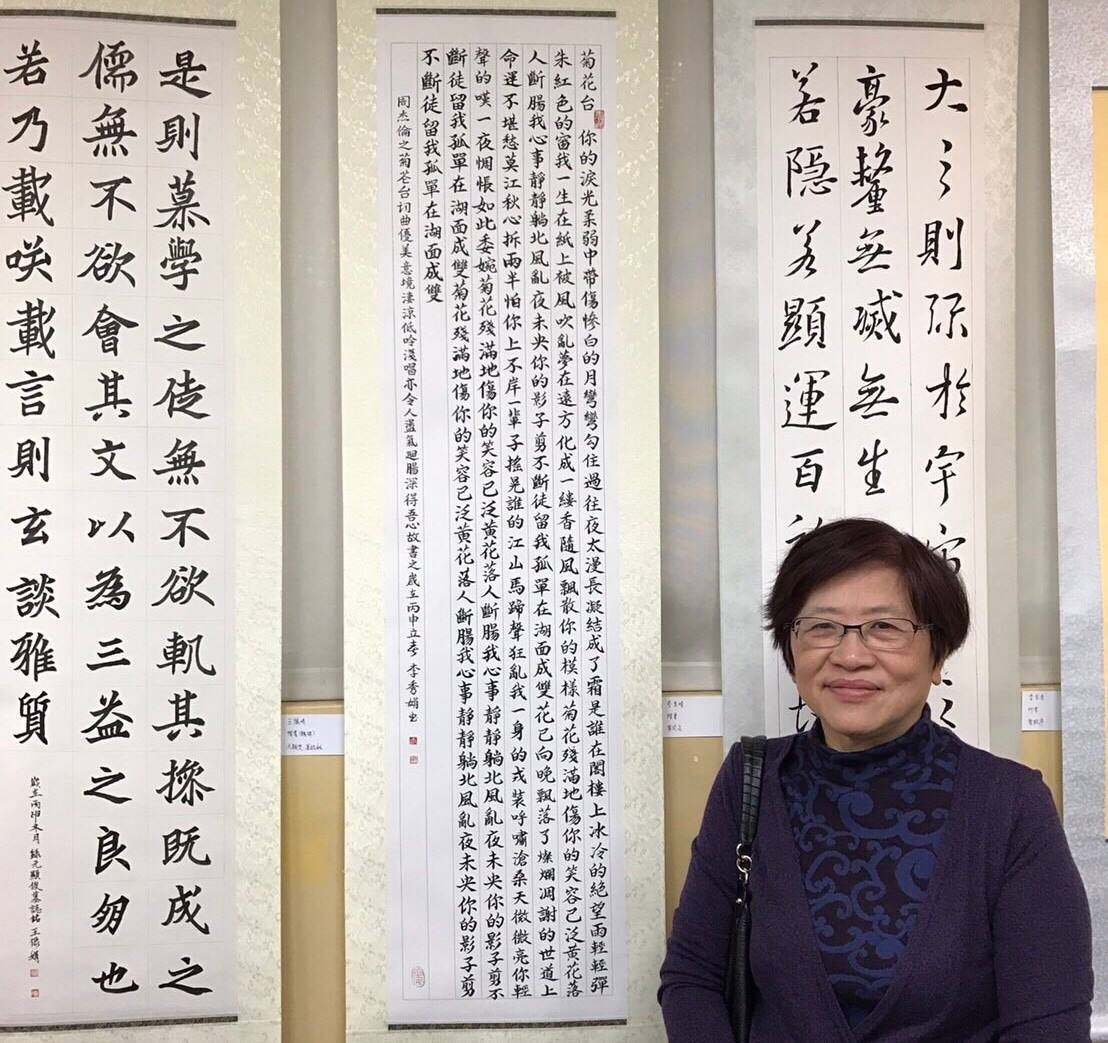 大〻則弥於宇宙
豪釐無滅無生
若隱若顯運百
菊花台 你的淚光柔弱中帶傷慘白的月彎彎勾住過往夜太漫長凝結成了霜是誰在閣樓上冰冷的絕望雨輕輕彈
朱紅色的窗我一生在紙上被風吹亂夢在遠方化成一縷香隨風飄散你的模樣菊花殘滿地傷你的笑容已泛黃花落
人斷腸我心事靜靜躺北風亂夜未央你的影子剪不斷徒留我孤單在湖面成雙花已向晚飄落了燦爛凋謝的世道上
命運不堪愁莫江秋心拆兩半怕你上不岸一輩子搖晃誰的江山馬蹄聲狂亂我一身的戎裝呼嘯滄桑天微微亮你輕
聲的嘆一夜惆悵如此委婉菊花殘滿地傷你的笑容已泛黃花落人斷腸我心事靜靜躺北風亂夜未央你的影子剪不
斷徒留我孤單在湖面成雙菊花殘滿地傷你的笑容已泛黃花落人斷腸我心事靜靜躺北風亂夜未央你的影子剪
不斷徒留我孤單在湖面成雙
周杰倫之菊花台詞曲優美意境淒涼低吟淺唱亦令人盪氣迴腸深得吾心故書之歲在丙申立春 李秀娟書
是則慕學之徒無不欲軌其操既成之
儒無不欲會其文以為三益之良朋也
若乃載咲載言則玄談雅質
歲在丙申 月 錄元顯俊墓誌銘 王